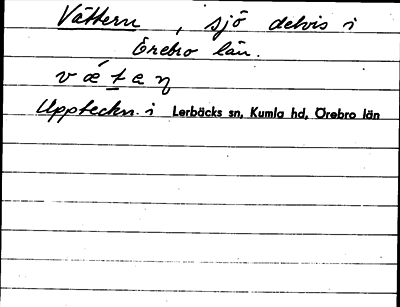 Vättern , sjö delvis i
Örebro län.
v ǽ t æ ɳ
Uppteckn. i Lerbäcks sn, Kumla hd, Örebro län